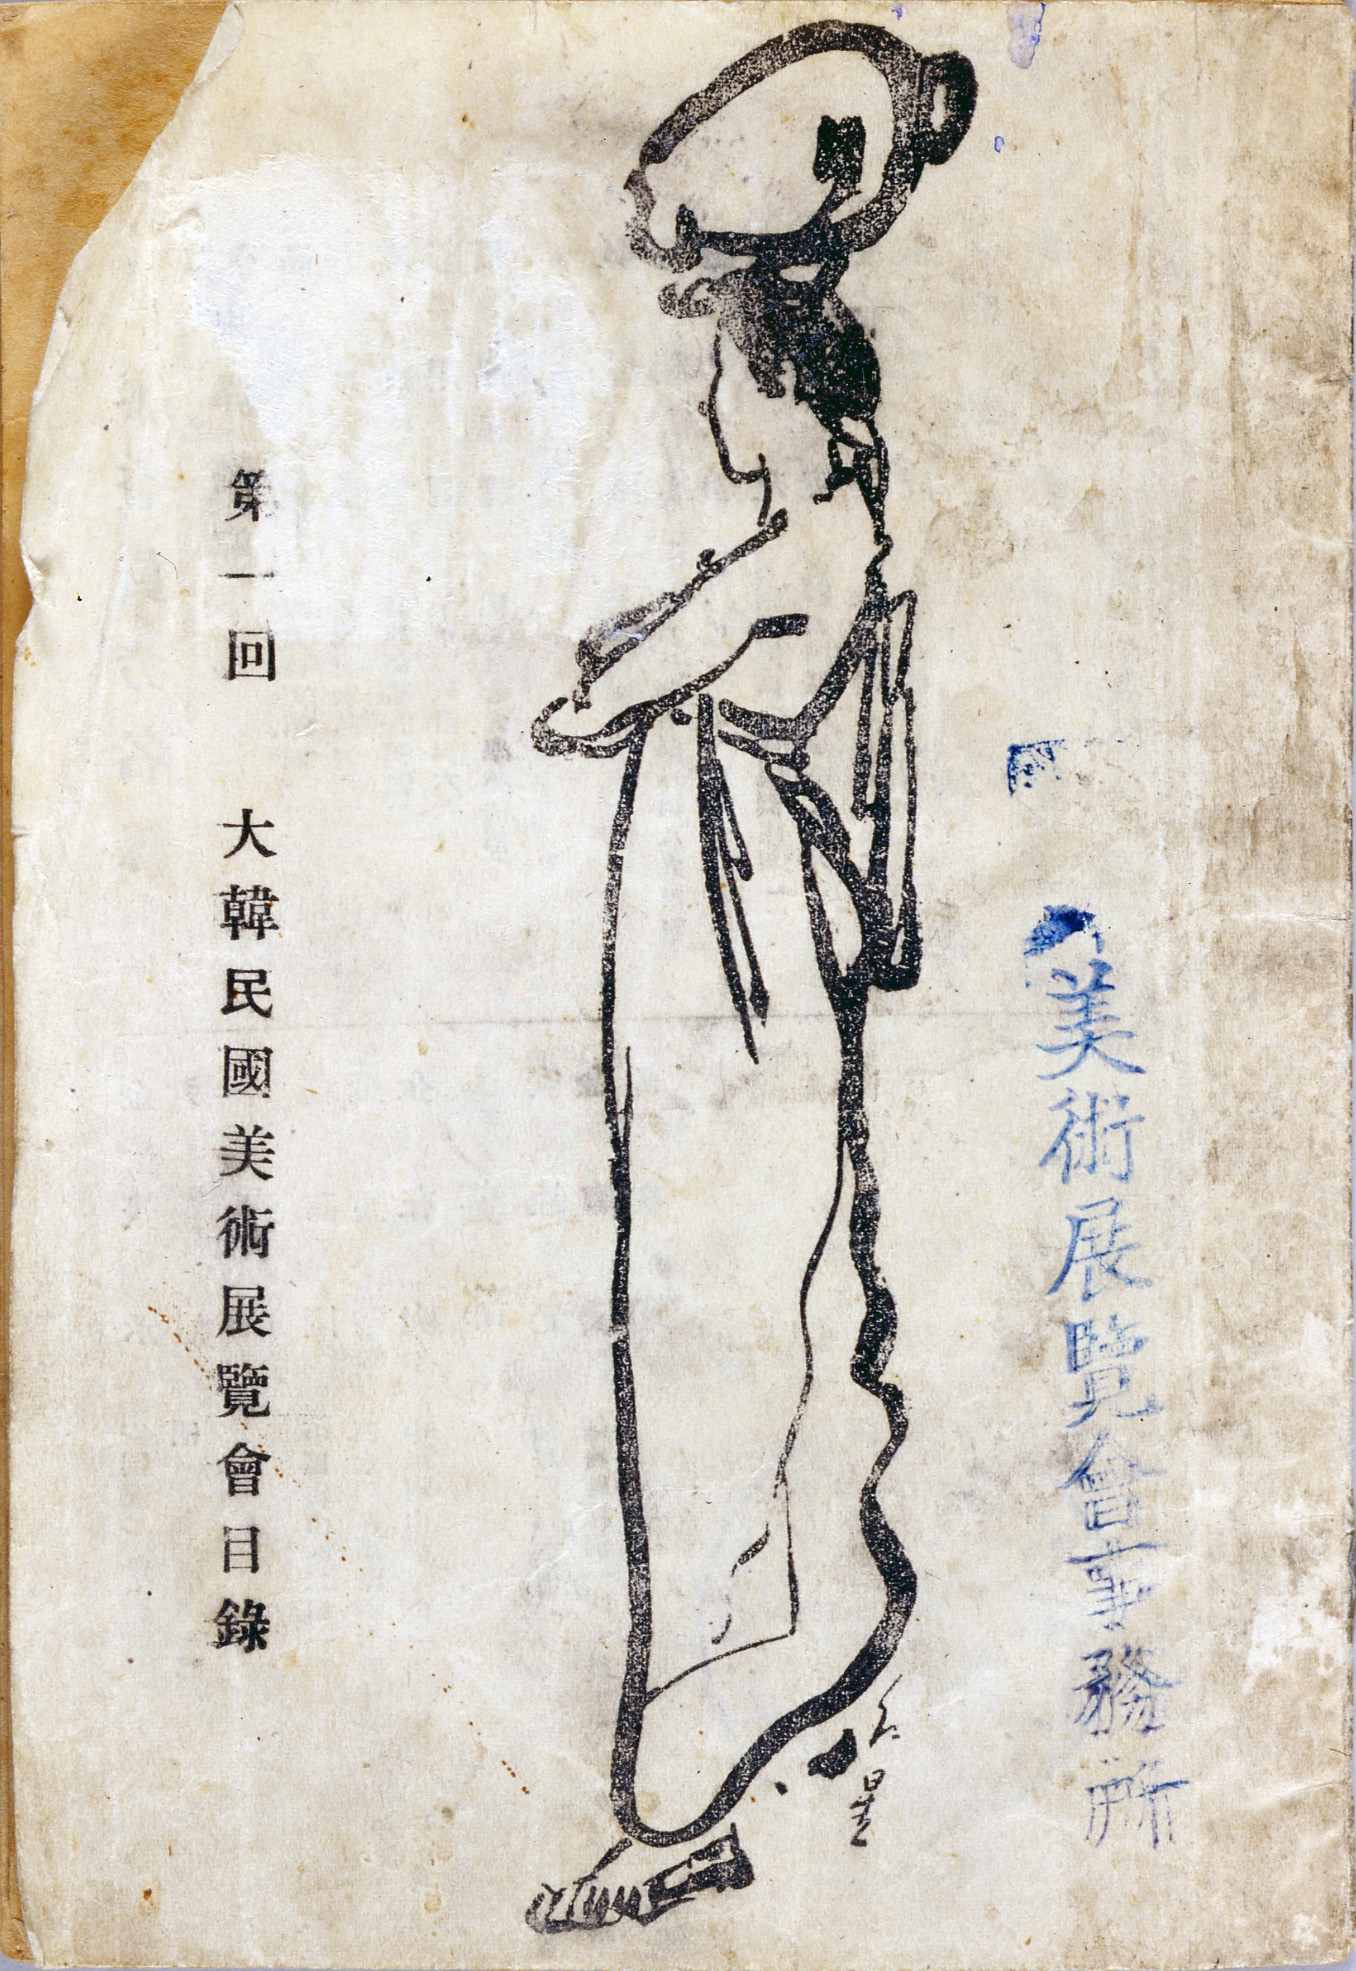 美術展覽會事務所
第一回 大韓民國美術展覽會目錄